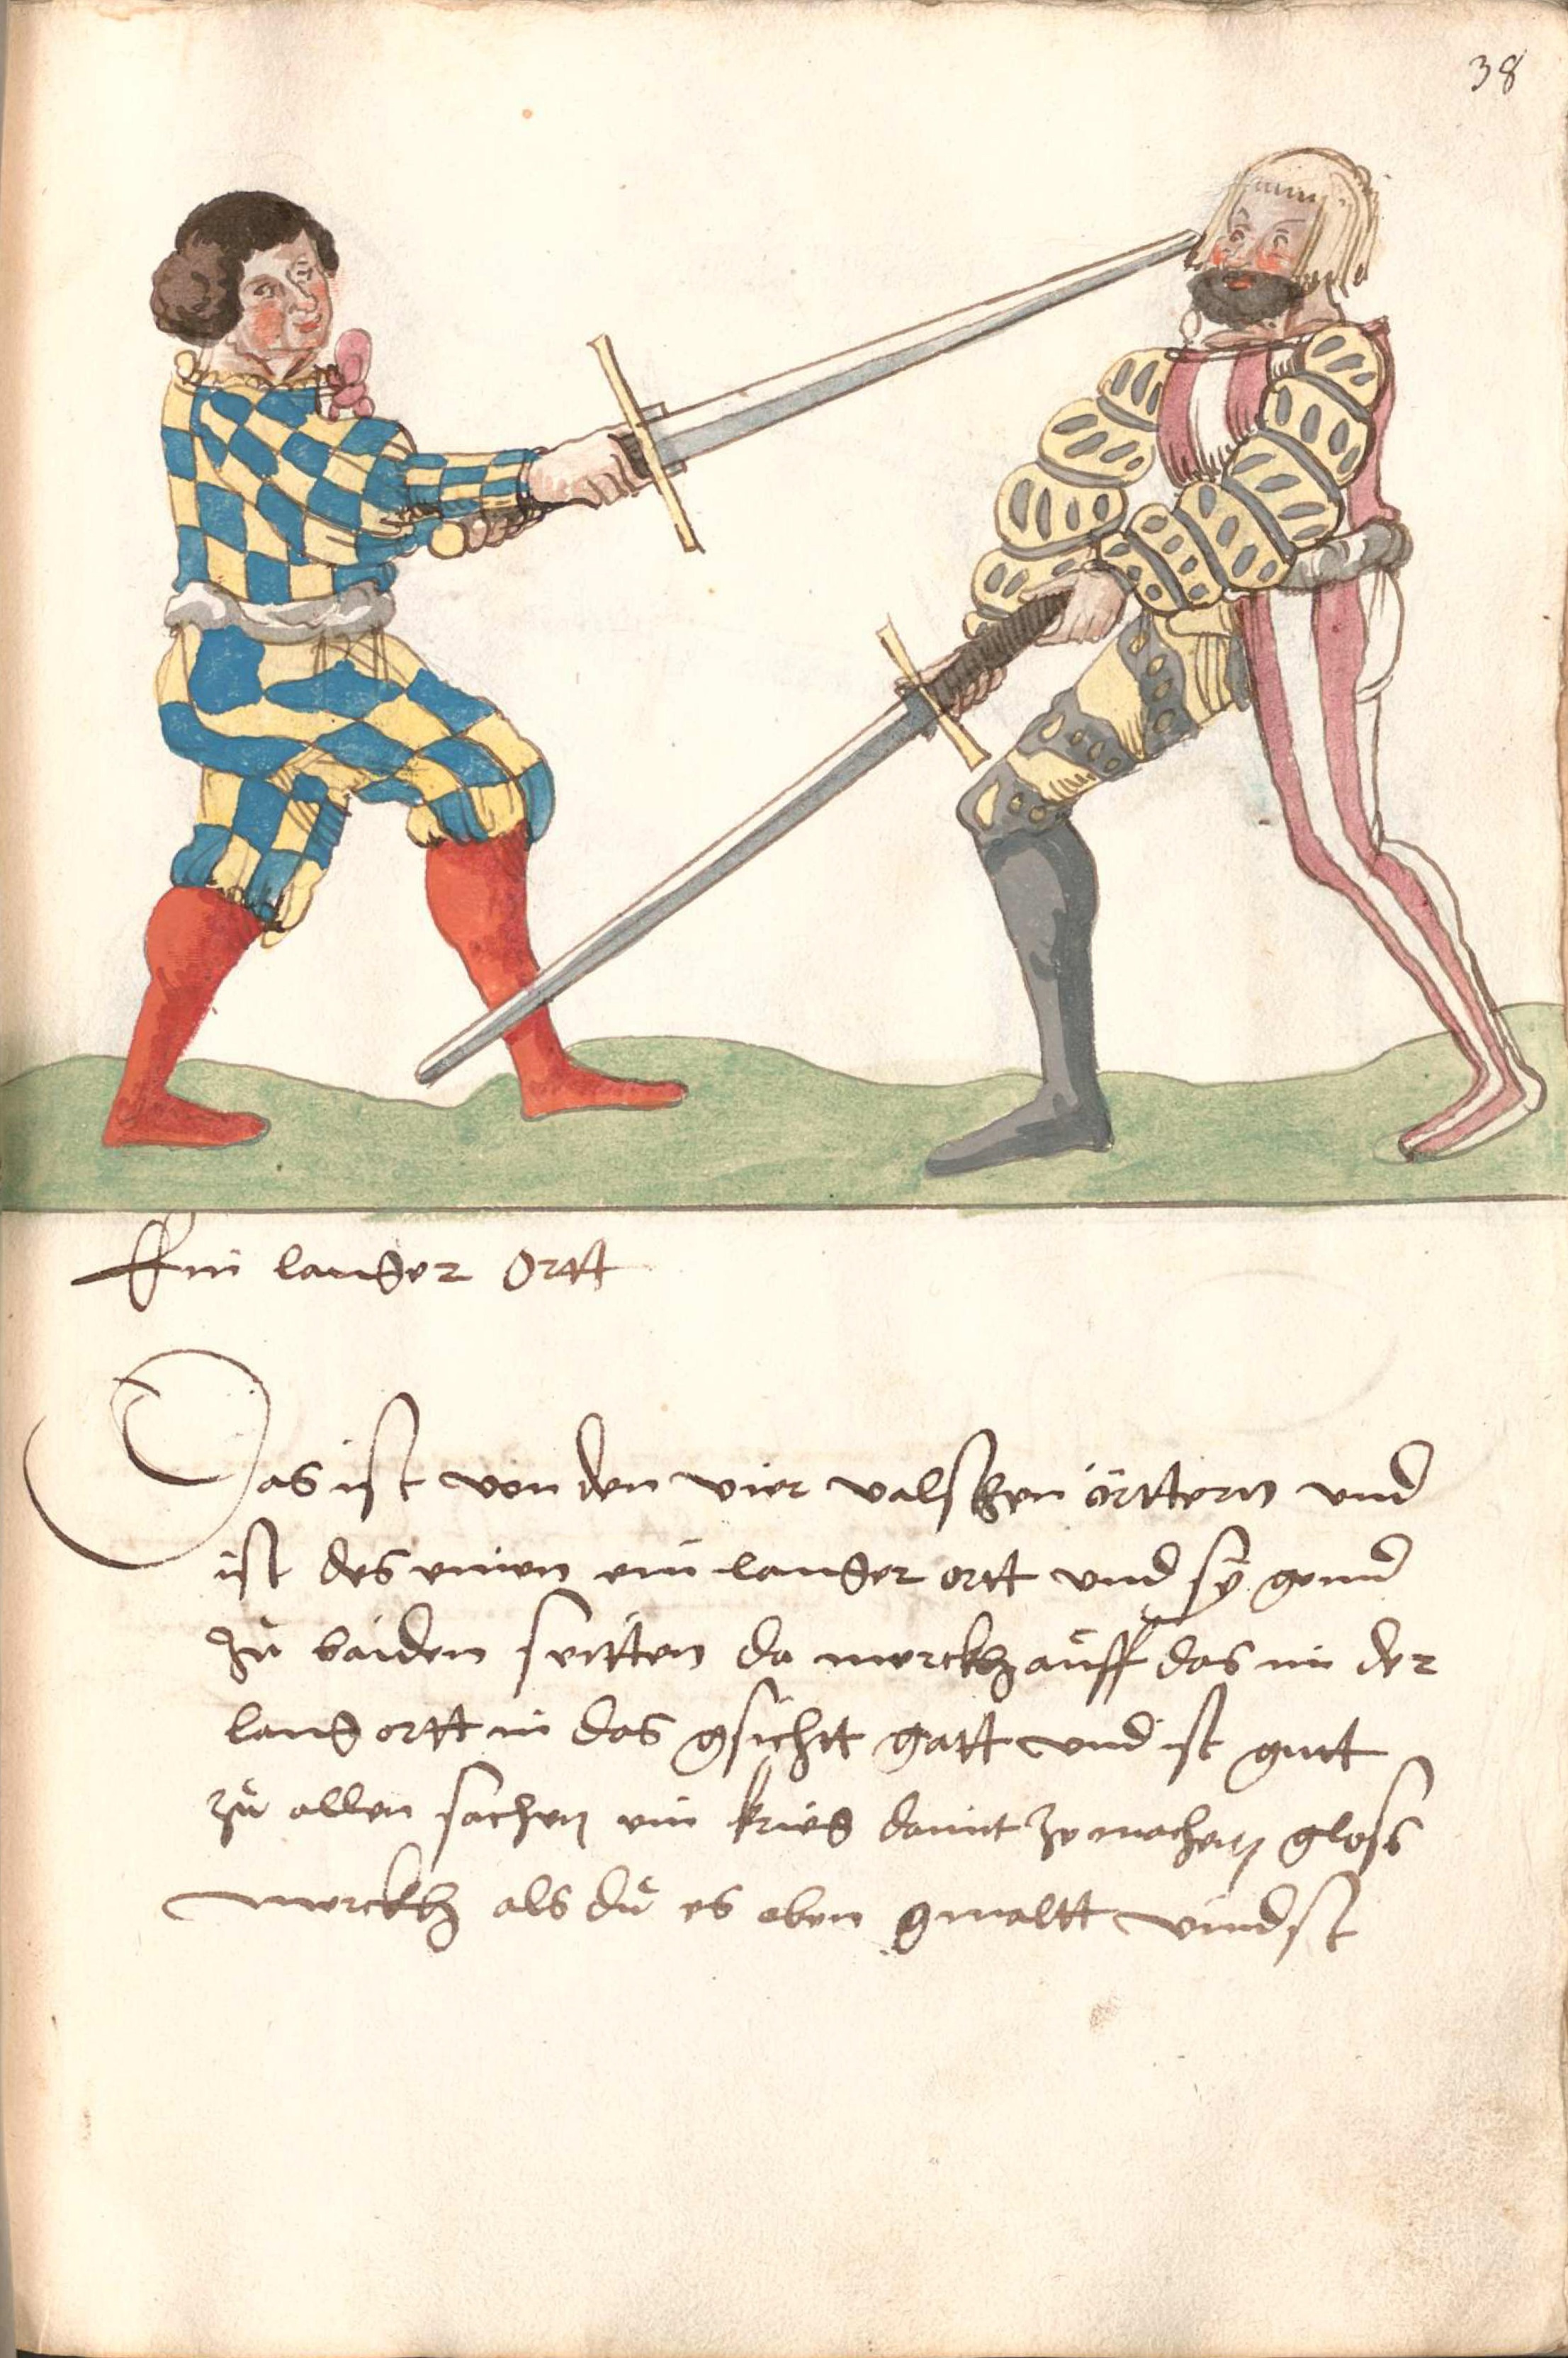 38
Ein langer Ortt
Das ist von den vier valschen örttern und
ist des einen ein langer ortt und sy gend
zů baiden seitten da merckh aůff das im der
lang ortt in das gsichtt gatt und ist gutt
zů allen sachen ein krieg damit ze machen gloss
merckh als dů es oben gmaltt vindst